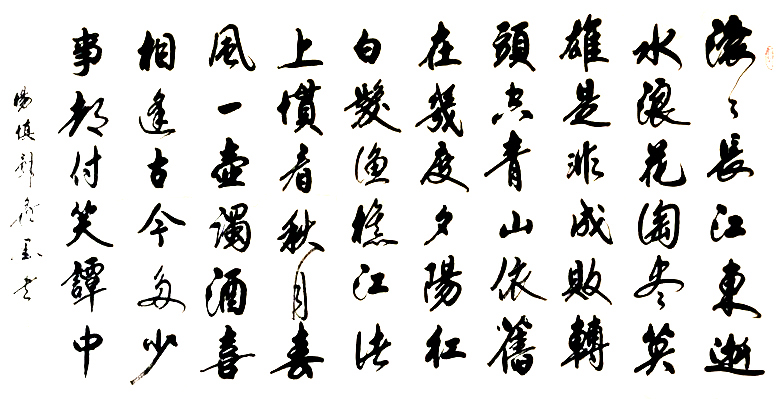 滚〻長江東逝
水浪花淘尽英
雄是非成敗轉
頭空青山依舊
在幾度夕陽紅
白髮渔樵江渚
上慣看秋月春
風一壺濁酒喜
相逢古今多少
事都付笑譚中
楊慎詞